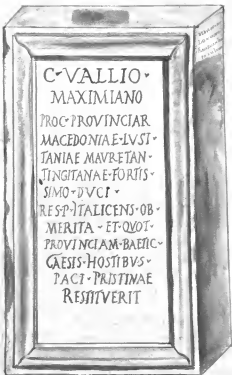 C·VALLIO·
MAXIMIANO
PROC·PROVINCIAR
MACEDONIAE·LVSI·
TANIAE MAVRETAN·
TINGITANAE·FORTIS·
SIMO·DVCI·
RES·P·ITALICENS·OB·
MERITA·ET·QVOT·
PROVINCIAM·BAETIC·
CAESIS·HOSTIBVS·
PACI·PRISTINAE
RESTITVERIT